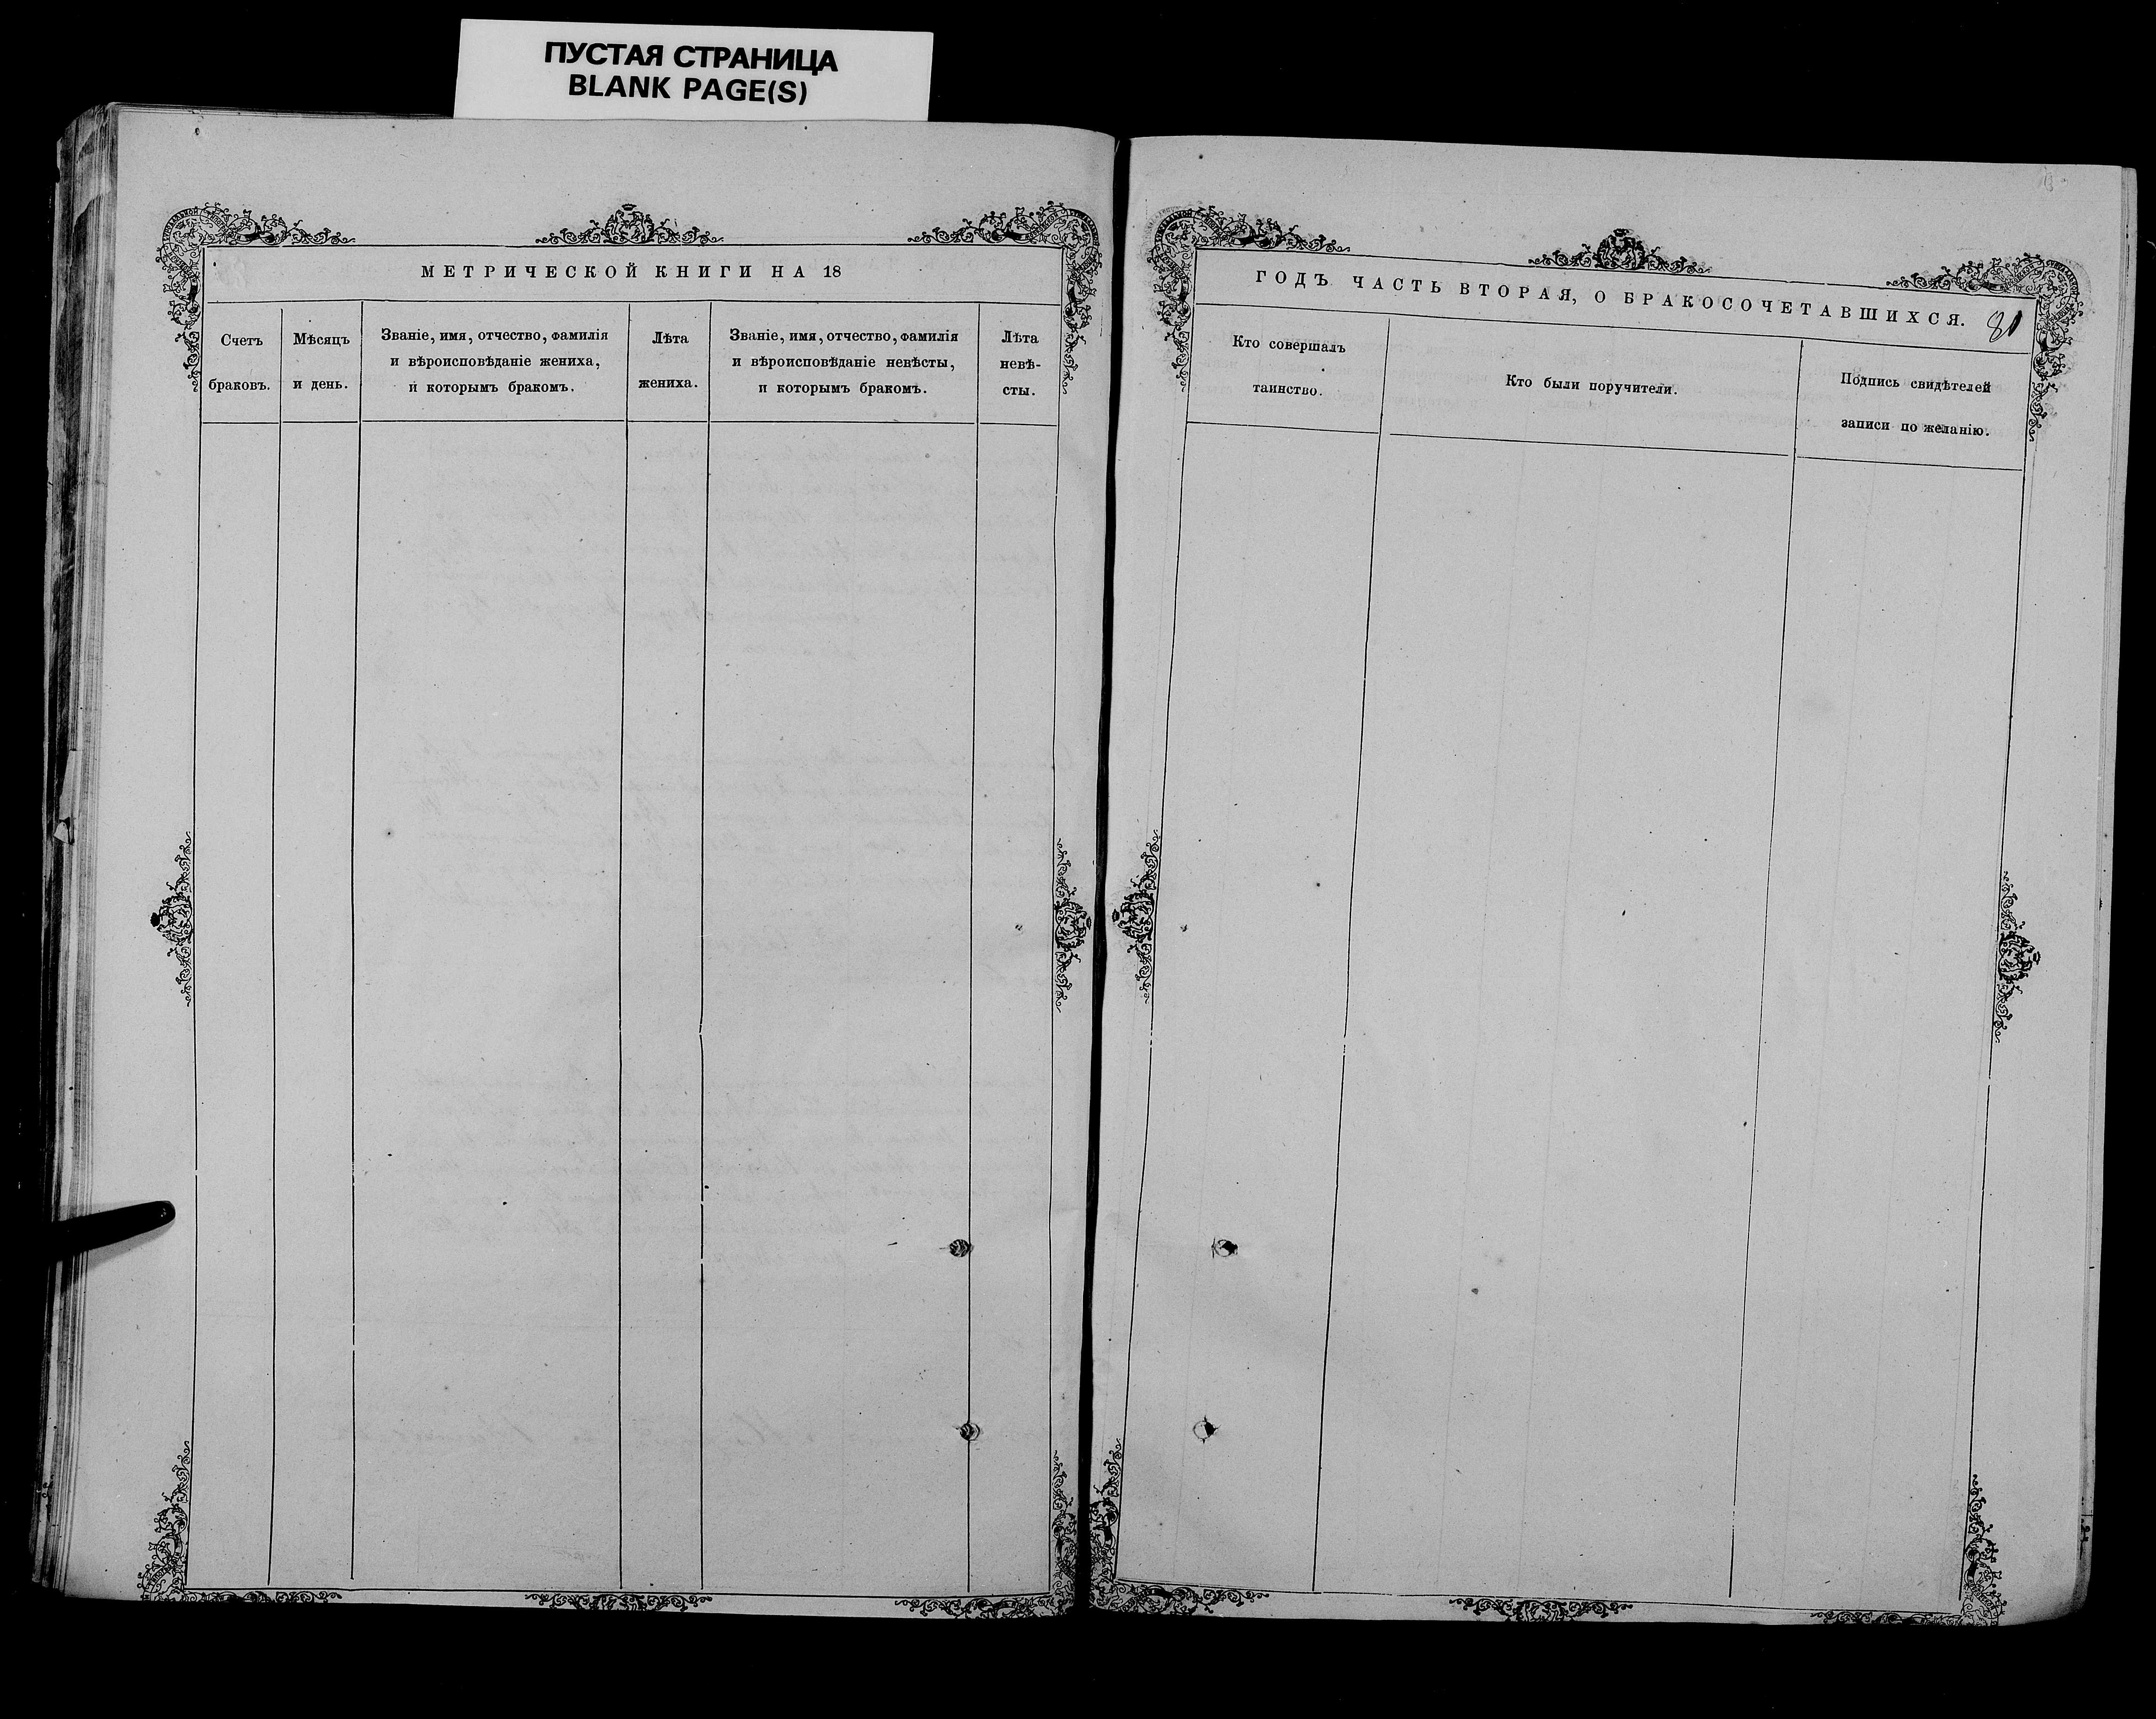 ПУСТАЯ СТРАНИЦА
BLANK PAGE(S)
МЕТРИЧЕСКОЙ КНИГИ НА 18
Счетъ
браковъ.
Мѣсяцъ
и день.
Званіе, имя, отчество, фамилія
и вѣроисповѣданіе жениха,
и которымъ бракомъ.
Лѣта
жениха.
Званіе, имя, отчество, фамилія
и вѣроисповѣданіе невѣсты,
и которымъ бракомъ.
Лѣта
невѣ-
сты.
ГОДЪ ЧАСТЬ ВТОРАЯ, О БРАКОСОЧЕТАВШИХСЯ.
81
Кто совершалъ
таинство.
Кто были поручители.
Подпись свидѣтелей
записи по желанію.